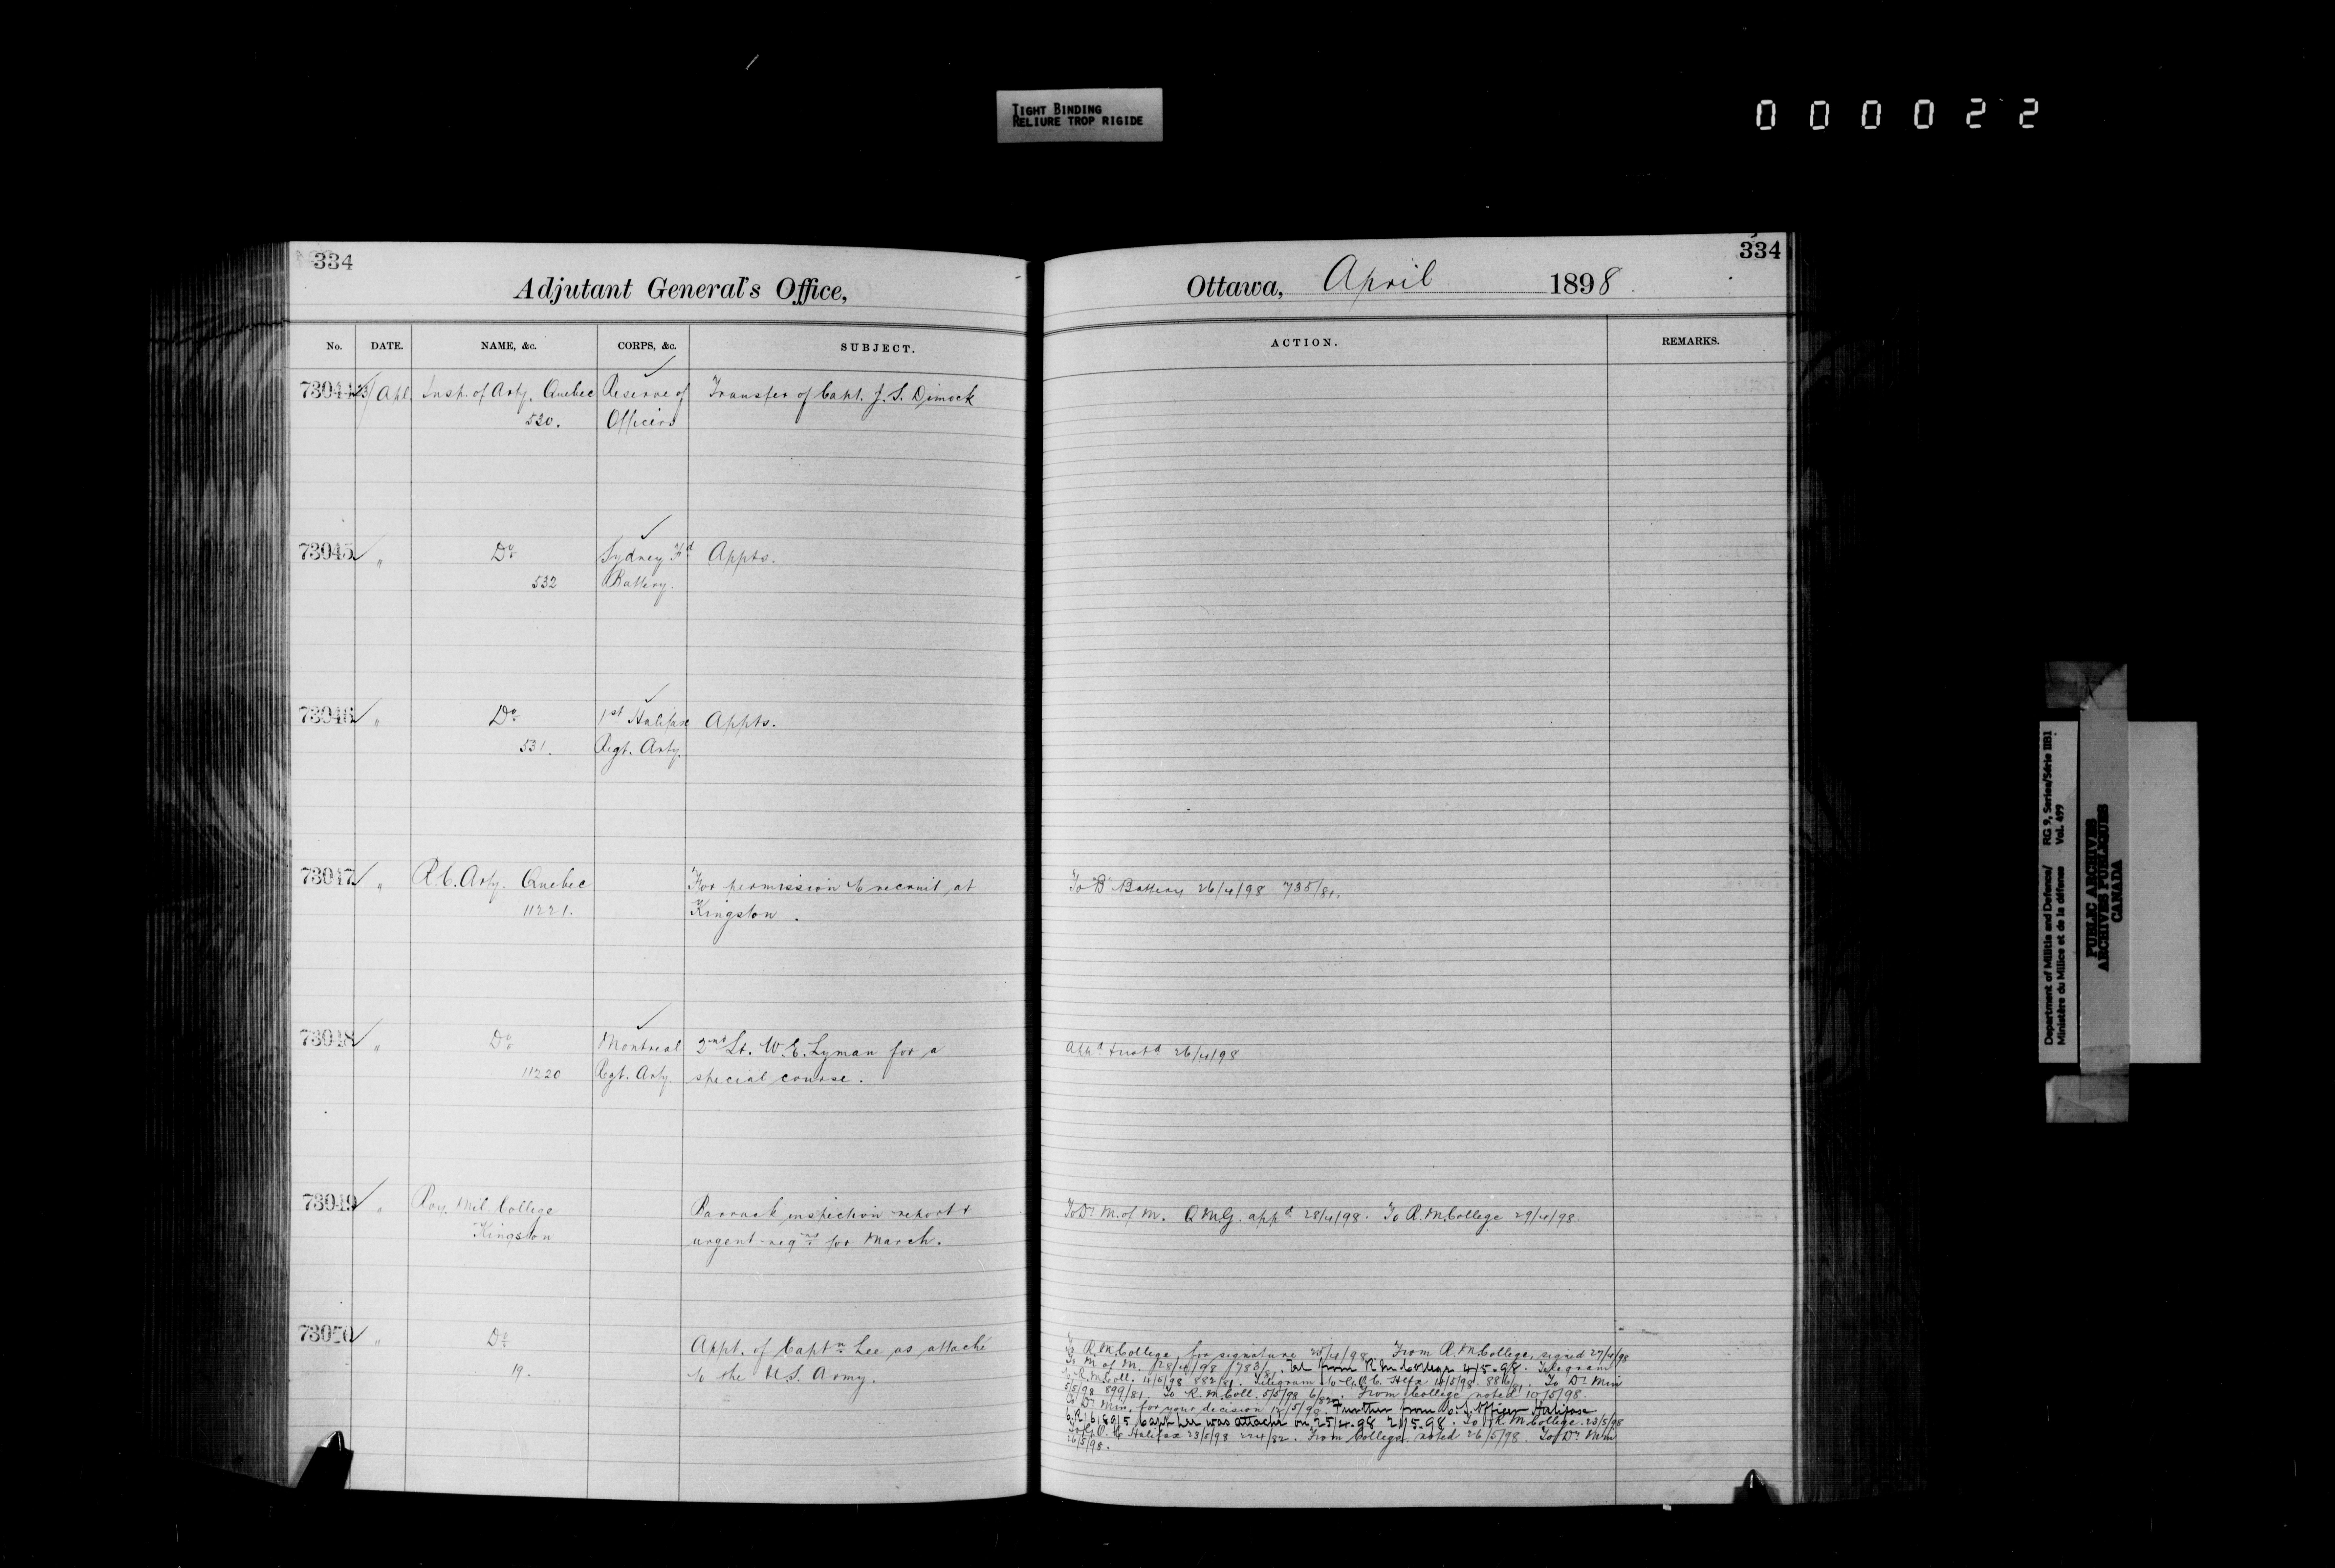 TIGHT BINDING
RELIURE TROP RIGIDE
000022
334
Adjutant General's Office,
No. DATE. NAME, &c. CORPS, &c. SUBJECT.
73044 23/Apl. Insp. of Arty. Quebec Reserve of Transfer of Capt. J. S. Dimock
530. Officers
73045 " Do Sydney Fd Appts.
532 Battery.
73046 " Do 1st Halifax Appts.
531. Regt. Arty.
73047 " R.C. Arty. Quebec For permission to recruit at
11221. Kingston.
73048 " Do Montreal 2nd Lt. W. E. Lyman for a
11220 Regt. Arty. special course.
73049 " Roy. Mil. College Barrack inspection report &
Kingston urgent reqnts for March.
73050 " Do Appt. of Captn Lee as attaché
19. to the U.S. Army.
334
Ottawa, April 1898
ACTION. REMARKS.
To "B" Battery 26/4/98 735/81.
26/4/98
To Dr M. of M. Q.M.G. appd 28/4/98. To R.M.College 29/4/98.
To R.M.College, for signature 25/4/98. From R.M.College, signed 27/4/98
To M. of M. 28/4/98 783/81. Tel from R M College 4/5.98. Telegram
to R.M.Coll. 4/5/98 882/81. Telegram to G.O.C. Hfx 4/5/98. 886/81 To Dr Min
5/5/98 899/81. To R.M.Coll. 5/5/98 6/82. From College noted 10/5/98.
To Dr Min. for your decision 12/5/98. Further from Halifax
Capt Lee was attache on 25/4.98 21/5.98. To R.M College. 23/5/98
To G.O.C. Halifax 23/5/98 224/82. From College, noted 26/5/98. To Dr Min
26/5/98.
Department of Militia and Defence/ RG 9, Series/Série IIB1
Ministère du Milice et de la défense Vol. 499
PUBLIC ARCHIVES
ARCHIVES PUBLIQUES
CANADA